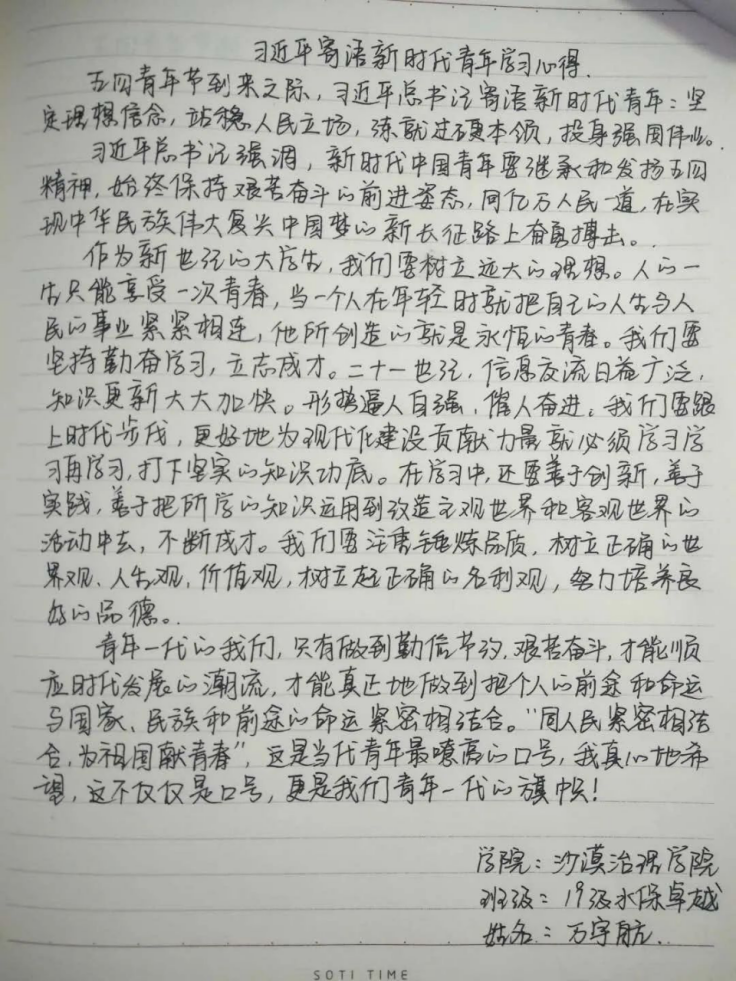 习近平寄语新时代青年学习心得.
五四青年节到来之际，习近平总书记寄语新时代青年：坚
定理想信念，站稳人民立场，练就过硬本领，投身强国伟业。
习近平总书记强调，新时代中国青年要继承和发扬五四
精神，始终保持艰苦奋斗的前进姿态，同亿万人民一道，在实
现中华民族伟大复兴中国梦的新长征路上奋勇搏击。
作为新世纪的大学生，我们要树立远大的理想。人的一
生只能享受一次青春，当一个人在年轻时就把自己的人生与人
民的事业紧紧相连，他所创造的就是永恒的青春。我们要
坚持勤奋学习，立志成才。二十一世纪，信息交流日益广泛，
知识更新大大加快。形势逼人自强，催人奋进。我们要跟
上时代步伐，更好地为现代化建设贡献力量就必须学习学
习再学习，打下坚实的知识功底。在学习中，还要善于创新，善于
实践，善于把所学的知识运用到改造主观世界和客观世界的
活动中去，不断成才。我们要注重锤炼品质，树立正确的世
界观、人生观、价值观，树立起正确的名利观，努力培养良
好的品德。
青年一代的我们，只有做到勤俭节约，艰苦奋斗，才能顺
应时代发展的潮流，才能真正地做到把个人的前途和命运
与国家、民族和前途的命运紧密相结合。“同人民紧密相结
合，为祖国献青春”，这是当代青年最嘹亮的口号，我真心地希
望，这不仅仅是口号，更是我们青年一代的旗帜！
学院：沙漠治理学院
班级：19级水保卓越
姓名：万宇航.
SOTI TIME